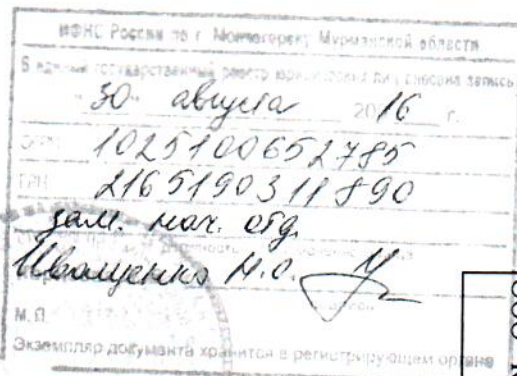 ИФНС России по г. Мончегорску Мурманской области
В единый государственный реестр юридических лиц внесена запись
"30" августа 2016 г.
ОГРН 1025100652785
ГРН 2165190311890
зам. нач. отд.
Иващенко М.О.
М.П.
Экземпляр документа хранится в регистрирующем органе